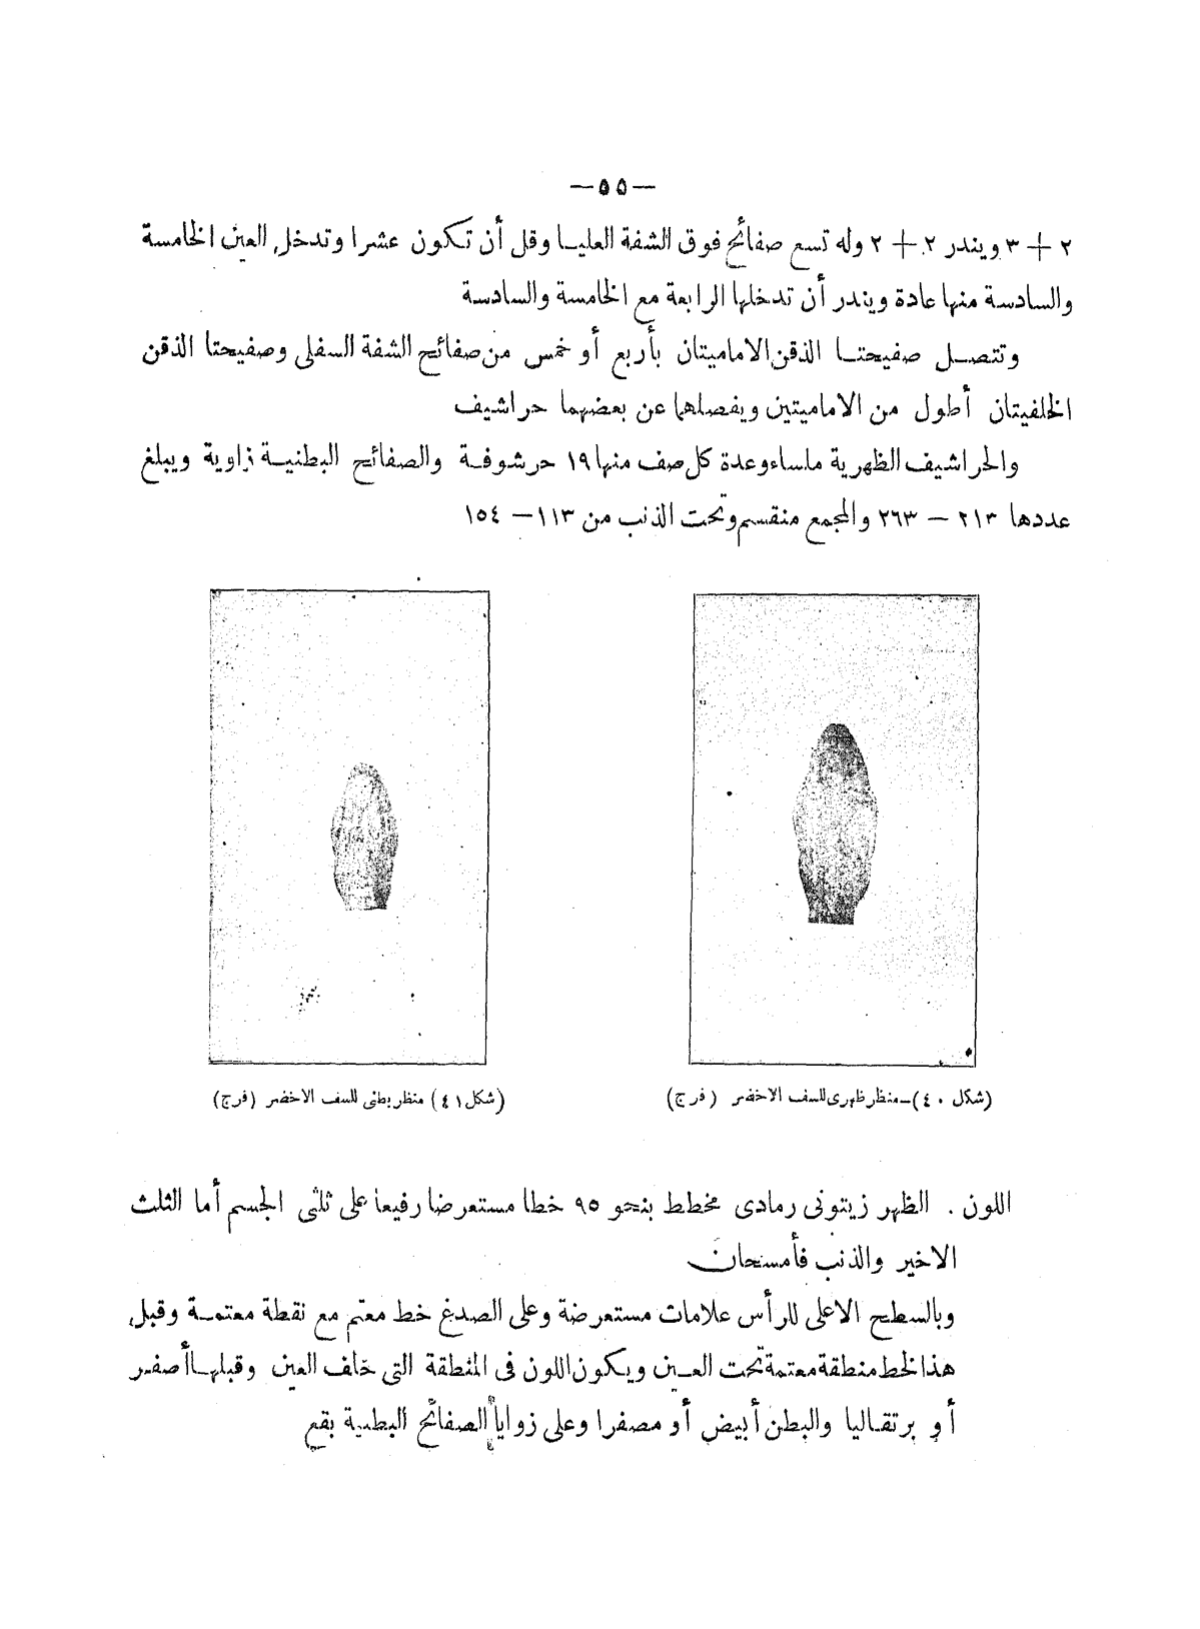 —٥٥—
٢ + ٣ ويندر ٢ + ٢ وله تسع صفائح فوق الشفة العليا وقل أن تكون عشرا وتدخل العين الخامسة
والسادسة منها عادة ويندر أن تدخلها الرابعة مع الخامسة والسادسة
وتتصل صفيحتا الذقن الاماميتان بأربع أو خمس من صفائح الشفة السفلى وصفيحتا الذقن
الخلفيتان أطول من الاماميتين ويفصلهما عن بعضهما حراشيف
والحراشيف الظهرية ملساء وعدة كل صف منها ١٩ حرشوفة والصفائح البطنية زاوية ويبلغ
عددها ٢١٣ — ٢٦٣ والمجمع منقسم وتحت الذنب من ١١٣ — ١٥٤
(شكل ٤٠) – منظر ظهرى للسف الاخضر (فرج)
(شكل ٤١) منظر بطنى للسف الاخضر (فرج)
اللون . الظهر زيتونى رمادى مخطط بنحو ٩٥ خطا مستعرضا رفيعا على ثلثى الجسم أما الثلث
الاخير والذنب فأمسحان
وبالسطح الاعلى للرأس علامات مستعرضة وعلى الصدغ خط معتم مع نقطة معتمة وقبل
هذا الخط منطقة معتمة تحت العين ويكون اللون فى المنطقة التى خلف العين وقبلها أصفر
أو برتقاليا والبطن أبيض أو مصفرا وعلى زوايا الصفائح البطنية بقع